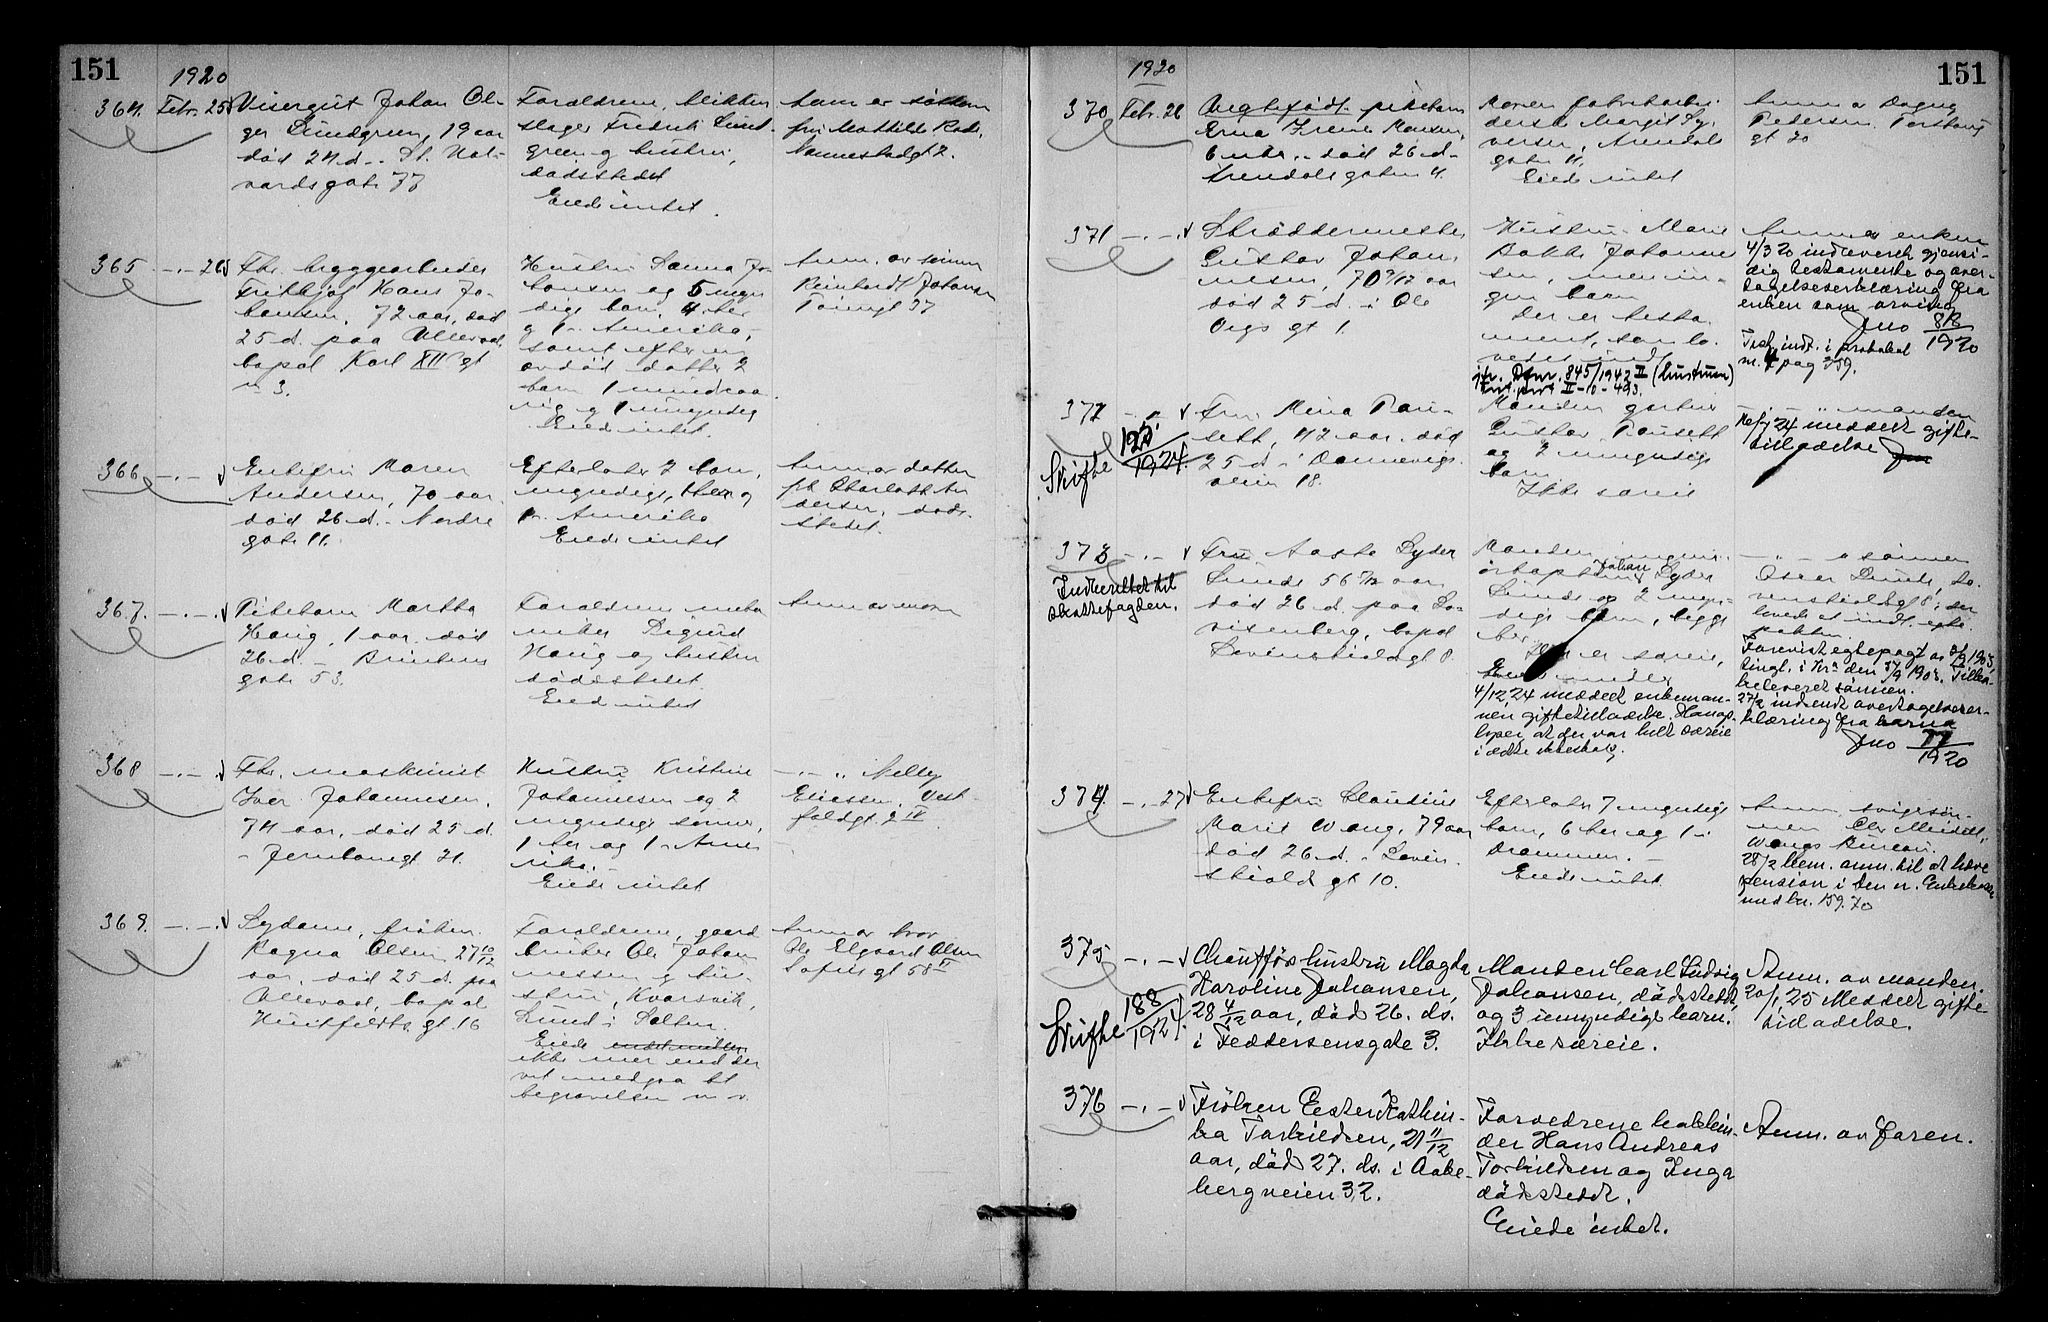 151
1920
364. Febr. 25 Visergut Johan Ol-
ger Lundgreen, 19 aar
død 24 d. - St. Hal-
vards gate 77
Forældrene, blikken
slager Fredrik Lund-
green og hustru,
dødsstedet
Eiede intet.
Anm. av søsteren
fru Mathilde
Nannestadgt 2.
365 -.- 26 Fhv. bryggearbeider
Fritthjof Hans Jo-
hansen, 72 aar, død
25 d. paa Ullevaal,
bopæl Karl XII gt
3.
Hustru Jo-
hansen og 5 myn
dige barn, 4 her
og 1 i Amerika,
samt efter en
avdød datter 2
barn 1 mindreaa
rig og 1 umyndig
Eiede intet.
Anm. av sønnen
Reinhardt Johansen
37
366 -.- Enkefru Maren
Andersen, 70 aar
død 26 d. - Nordre
gate 11.
Efterlater 2 barn,
myndige, 1 her og
1 i Amerika
Eiede intet
Anm. av datter
frk Charlotte An
dersen, døds-
stedet.
367. -.- Pikebarn Martha
Haug, 1 aar, død
26 d. - Brinkens
gate 53.
Forældrene
Sigurd
Haug og hustru
dødsstedet.
Eiede intet
Anm. av moren
368 -.- Fhv. maskinist
Iver Johannesen,
74 aar, død 25 d.
- Jernbanegt 21.
Hustru Kristine
Johannesen og 2
myndige sønner,
1 her og 1 i Ame
rika.
Eiede intet
-.- Nelly
Eliassen, Vest-
foldgt. 2 IV
369. -.- Sydame, frøken
Ragna Olsen, 27 10/12
aar, død 25 d. paa
Ullevaal, bopæl
Huitfeldts gt. 16
Forældrene, gaard
bruker Ole Johan
nessen og hu-
stru, Kvarsvik,
Lund i Salten.
Eiede
ikke mer end der
vil medgaa til
begravelsen m v.
Anm av bror
Ole Elgaard Olsen
Sofies gt 58 II
151
1920
370 Febr. 26 Uegtefødt pikebarn
Erna Irene Hansen,
6 mdr. død 26 d. -
Arendalsgaten 4.
Moren fabrikarbei-
derske Margit Sy-
versen, Arendals
gaten 4.
Eiede intet
Anm av Dagny
Pedersen,
gt 20
371 -.- Skræddermester
Gustav Johan-
nesen, 70 9/12 aar
død 25 d. i Ole
Vigs gt 1.
Hustru Marie
Bakke Johanne
sen, men in-
gen barn
Der er testa
ment, som lo-
vedes indl.
jfr. Dfnr. 845/1942 II (hustruen)
II-10-493.
Anm av enken
4/3 20 indleveret gjensi-
dig testamente og over-
tagelseserklæring fra
enken som arving.
Jno 83/1920
Test. indt. i protokol
nr. 4 pag 359.
372 -.- Fru Mina Pau-
sett, 42 aar, død
25 d. i Dannevigs-
veien 18.
Skifte 192/1924.
Manden gartner
Gustav Pausett
og 2 umyndige
barn
Ikke særeie
-.- manden
24 meddelt gifte-
tilladelse
373 -.- Fru Aasta Lyder
Lunde 56 aar
død 26 d. paa Lo-
visenberg, bopæl
Løvenskioldgt 8.
Indberettet til
skattefogden.
Manden ingeni-
ørkaptein Johan Lyder
Lunde og 2 myn-
dige barn, begge
her.
Der er særeie,
4/12 24 meddelt enkeman-
nen giftetilladelse. Han op-
lyser, at der var helt særeie
i ekteskabet.
-.- av sønnen
Oscar Lunde, Lø-
venskioldgt 8; der
lovede at indl. egte-
pakten.
Forevist egtepagt av 1903,
tingl. i Kra den 1903. Tilba-
keleveret sønnen.
27/2 indsendt overtagelseser-
klæring fra barna
Jno 77/1920
374. -.- 27 Enkefru Claudine
Marie Wang, 79 aar
død 26 d. - Løven-
skiolds gt 10.
Efterlater 7 myndige
barn, 6 her og 1 i
Drammen.
Eiede intet
Anm. svigersøn-
nen Chr Meidell,
Wangs Bureau.
28/2 hem. anm. til at hæve
pension i den n. Enkekasse
med kr. 159.70
375 -.- Chaufførhustru Magda
Karoline Johansen,
28 4/12 aar, død 26. ds.
i Feddersensgate 3.
Skifte 188/1924.
Manden Carl Ludvig
Johansen, dødsstedet,
og 3 umyndige barn.
Ikke særeie.
Anm. av manden.
20/1 25 Meddelt gifte-
tilladelse.
376 -.- Frøken Ester Kathin-
ka Torkildsen, 21 11/12
aar, død 27. ds. i Aake-
bergveien 32.
Forældrene
Hans Andreas
Torkildsen og Inga
dødsstedet.
Eiede intet.
Anm. av faren.